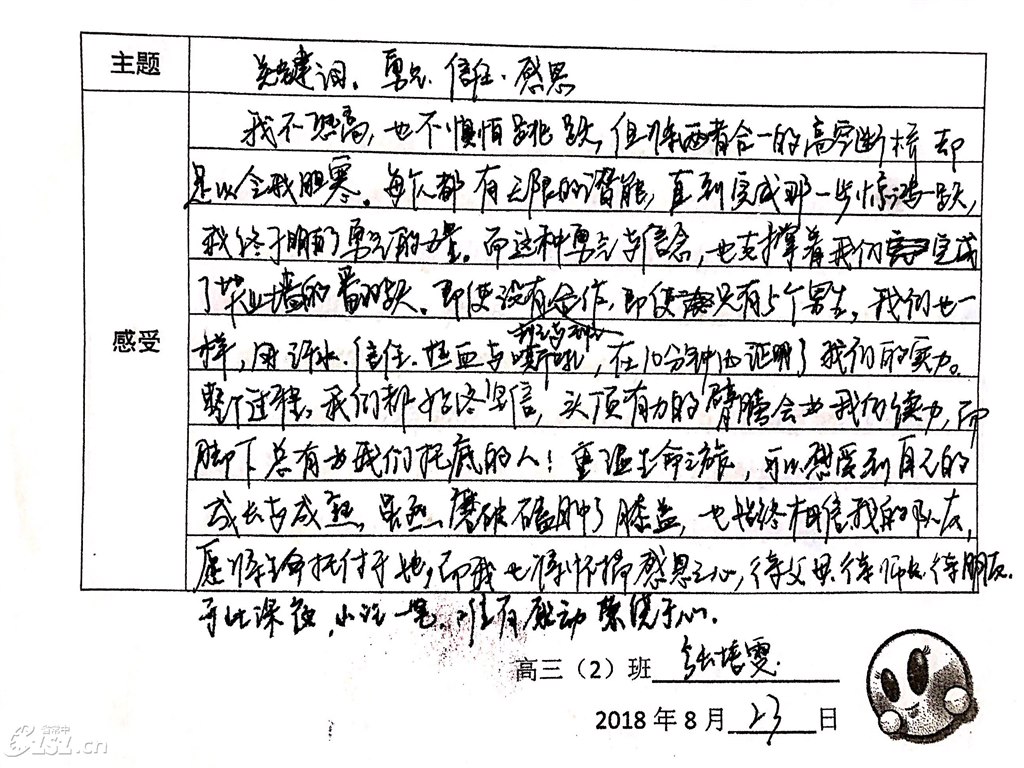 主题
关键词：勇气、信任、感恩
感受
我不恐高，也不惧怕跳跃，但将两者合一的高空断桥却
足以令我胆寒。每个人都有无限的潜能，直到完成那一步惊鸿一跃，
我终于明白了勇气的力量。而这种勇气与信念，也支撑着我们完成
了毕业墙的翻跃。即使没有合作，即使只有5个男生，我们也一
样，用汗水、信任、热血与嘶吼，在10分钟内证明了我们的实力。
整个过程，我们都始终坚信，头顶有力的臂膀会为我们使力，而
脚下总有为我们托底的人！重温生命之旅，可以感受到自己的
成长与成熟，虽然磨破磕肿了膝盖，也始终相信我的队友，
愿将生命托付于她，而我也将怀揣感恩之心，待父母、待师长、待朋友。
于此深夜，小记一笔，唯有感动萦绕于心。
高三（2）班 培雯
2018年8月23日